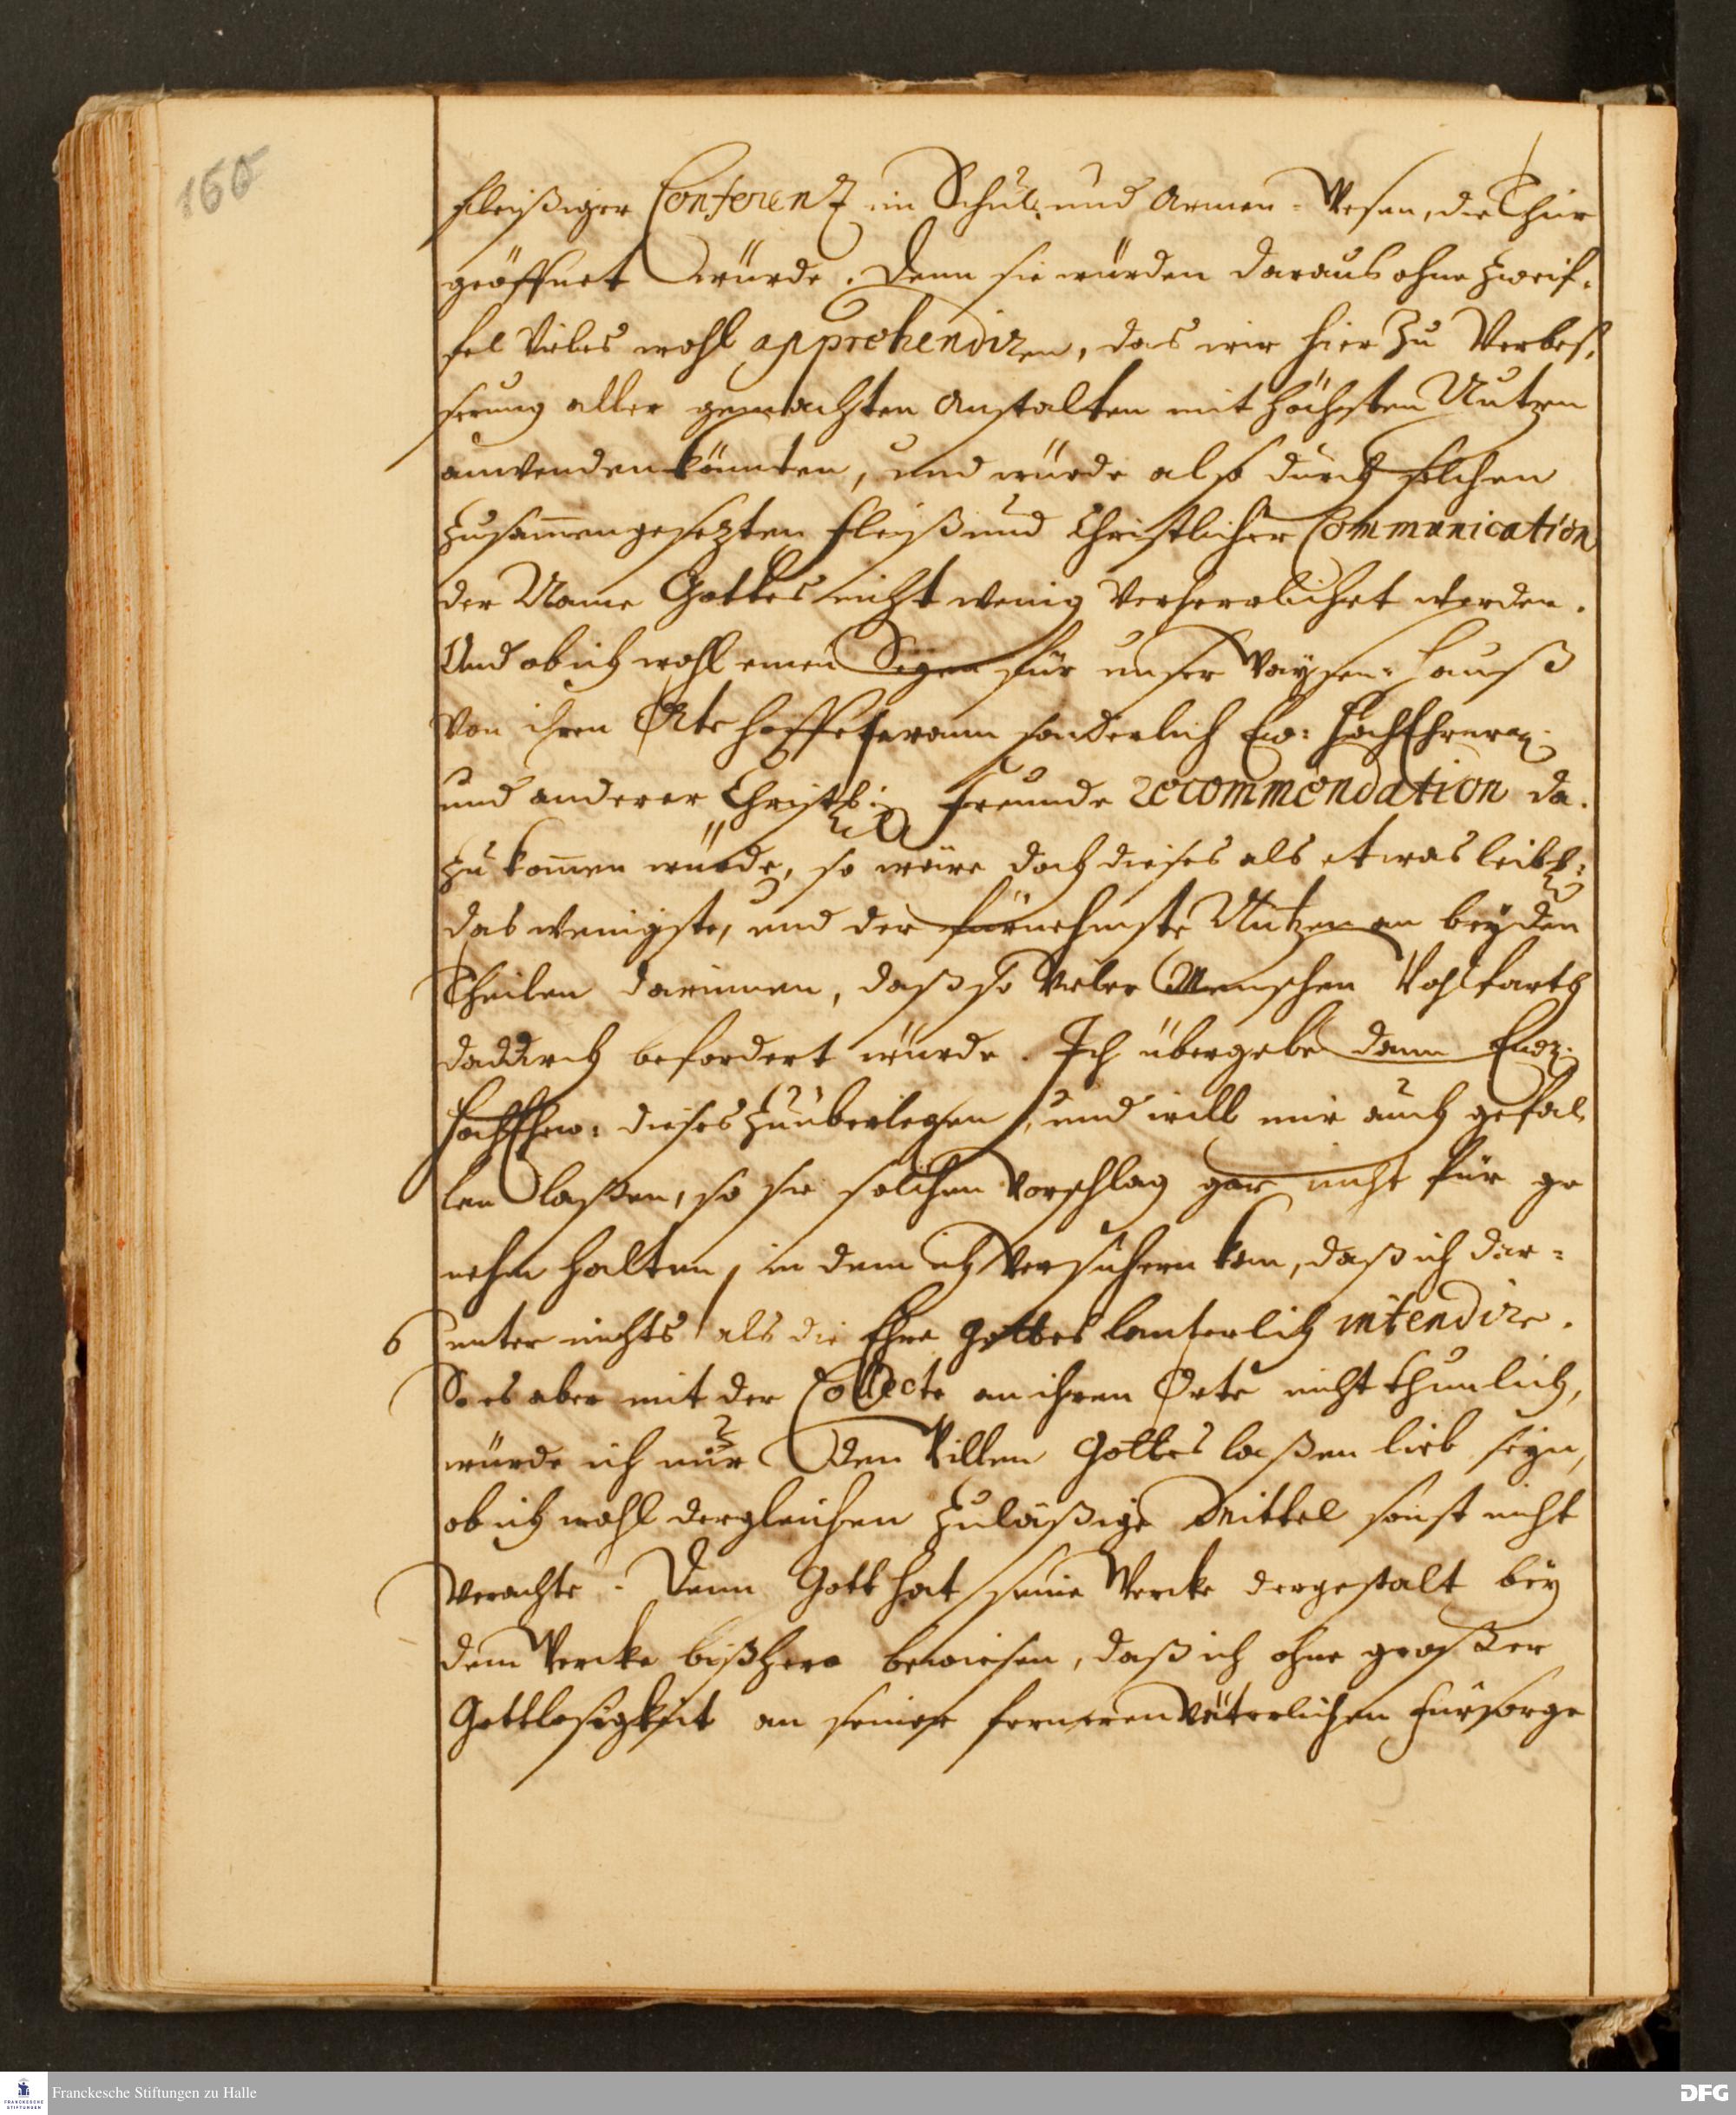 160
fleißiger Conferenz im Schul- und Armen-Wesen, die Thür
geöffnet würde. Denn sie würden daraus ohne Zweif-
fel vieles wohl apprehendiren, das wir hier zu Verbes-
serung aller gemachten Anstalten mit höchsten Nutzen
anwenden könnten, und würde also durch solchen
zusam̄engesezten Fleiß und Christlicher Communication
der Name Gottes nicht wenig verherrlichet werden.
Und ob ich wohl einen Segen für unser Waysen-Hauß
von ihren Orte hoffete wann sonderlich Ew: HochEhrw.
und anderer Christl: Freunde recommendation da-
zu kom̄en würde, so wäre doch dieses als etwas leibl:
das wenigste, und der fürnehmste Nutzen an beyden
Theilen darinnen, daß so vieler Menschen Wohlfarth
dadurch befordert würde. Ich übergebe dann Ew.
HochEhrw: dieses zu überlegen, und will mir auch gefal
len laßen, so sie solchen Vorschlag gar nicht für ge
nehm halten, in dem ich versichern kan, daß ich dar-
6 unter nichts als die Ehre Gottes lauterlich intendire.
So es aber mit der Collecte an ihren Orte nicht thunlich,
würde ich mir den Willen Gottes laßen lieb seyn,
ob ich wohl dergleichen zuläßige Mittel sonst nicht
verachte. Denn Gott hat seine Wercke dergestalt bey
dem Wercke bißhero bewiesen, daß ich ohne großer
Gottlosigkeit an seiner ferneren väterlichen Fürsorge
Franckesche Stiftungen zu Halle
FRANCKESCHE
STIFTUNGEN
DFG